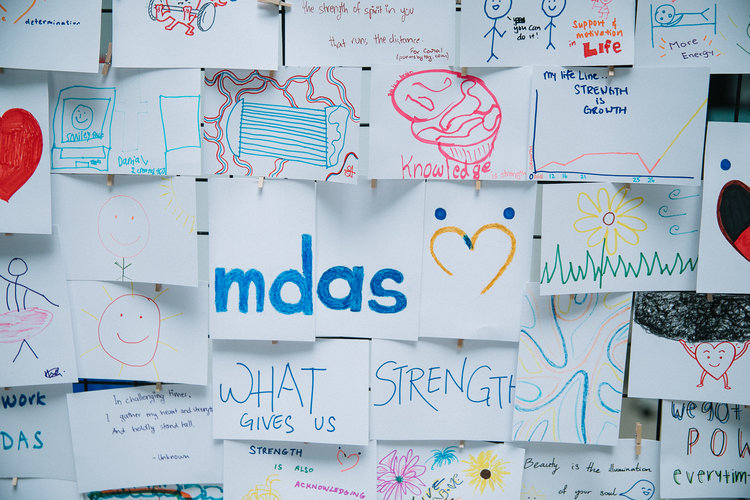 determination
the strength of spirit in you
that runs, the distance.
you
you can
do it!
Support &
motivation
in Life
More
Energy
SMILEY
Knowledge is strength
my life Line..
STRENGTH
IS
GROWTH
0 12 16 21 25 26
mdas
WHAT
GIVES US
STRENGTH
work
DAS
In challenging times,
I gather my heart and strength
And boldly stand tall.
- Unknown
STRENGTH
IS ALSO
ACKNOWLEDGING
Beauty is the illumination
of your soul
we got
POW
everytim